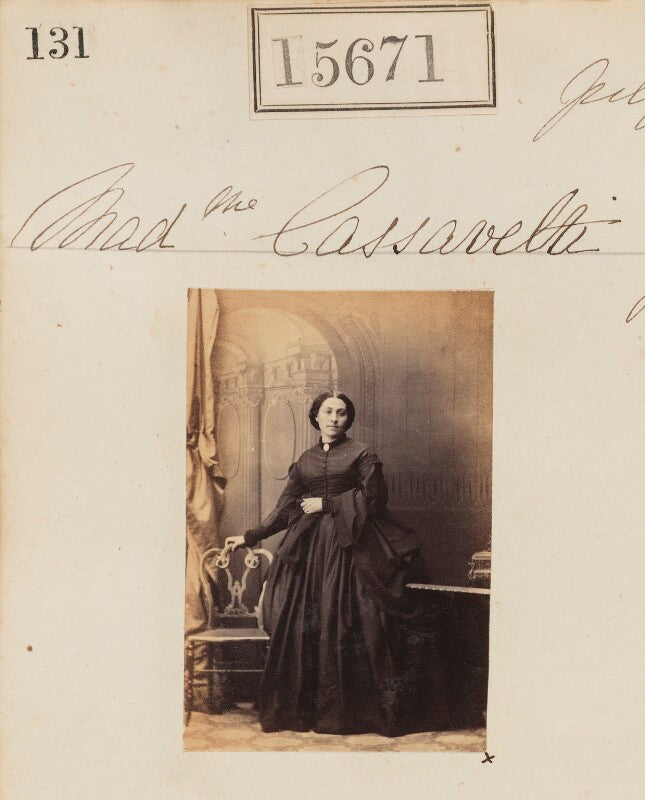 131
15671
Mad me Cassavetti
x